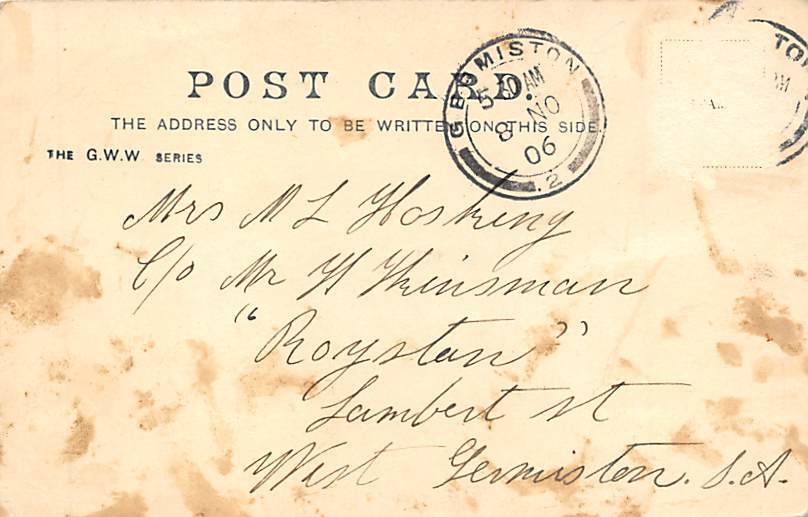 POST CARD.
THE ADDRESS ONLY TO BE WRITTEN ON THIS SIDE
THE G.W.W SERIES
GERMISTON
5 30 AM
8 NO
06
.2
TON
Mrs M L Hosking
C/o Mr H Hinsman
"Roystan"
Lambert St
West Germiston. S.A.